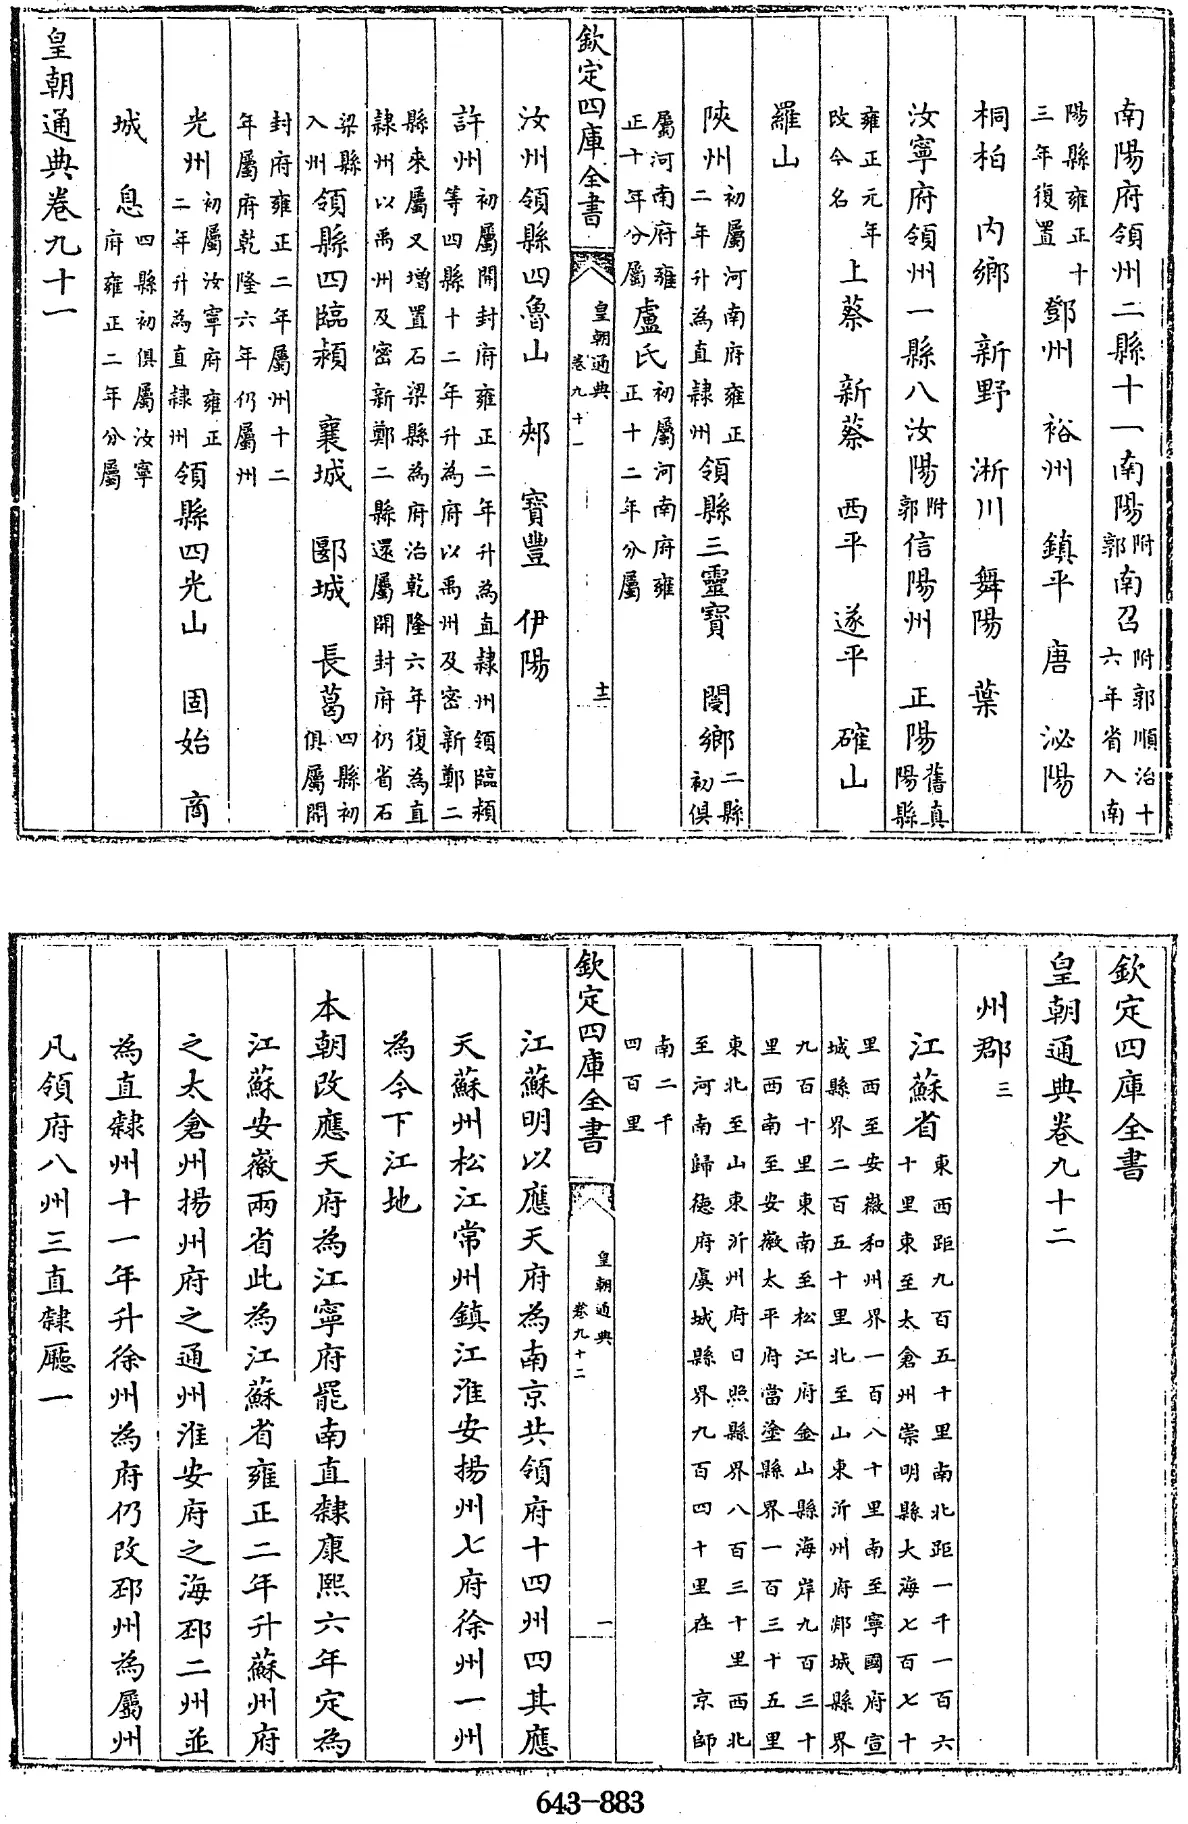 南陽府領州二縣十一南陽附郭南召附郭順治十六年省入南
陽縣雍正十三年復置 鄧州 裕州 鎮平 唐 泌陽
桐柏 內鄉 新野 淅川 舞陽 葉
汝寧府領州一縣八汝陽附郭信陽州 正陽舊真陽縣
雍正元年改今名 上蔡 新蔡 西平 遂平 確山
羅山
陝州初屬河南府雍正二年升為直隸州領縣三靈寶 閿鄉二縣初俱
屬河南府雍正十年分屬盧氏初屬河南府雍正十二年分屬
欽定四庫全書 皇朝通典卷九十一 十三
汝州領縣四魯山 郟 寶豐 伊陽
許州初屬開封府雍正二年升為直隸州領臨潁等四縣十二年升為府以禹州及密新鄭二
縣來屬又增置石梁縣為府治乾隆六年復為直隸州以禹州及密新鄭二縣還屬開封府仍省石
梁縣入州領縣四臨潁 襄城 郾城 長葛四縣初俱屬開
封府雍正二年屬州十二年屬府乾隆六年仍屬州
光州初屬汝寧府雍正二年升為直隸州領縣四光山 固始 商
城 息四縣初俱屬汝寧府雍正二年分屬
皇朝通典卷九十一
欽定四庫全書
皇朝通典卷九十二
州郡三
江蘇省東西距九百五十里南北距一千一百六十里東至太倉州崇明縣大海七百七十
里西至安徽和州界一百八十里南至寧國府宣城縣界二百五十里北至山東沂州府郯城縣界
九百十里東南至松江府金山縣海岸九百三十里西南至安徽太平府當塗縣界一百三十五里
東北至山東沂州府日照縣界八百三十里西北至河南歸德府虞城縣界九百四十里在 京師
南二千四百里
欽定四庫全書 皇朝通典卷九十二 一
江蘇明以應天府為南京共領府十四州四其應
天蘇州松江常州鎮江淮安揚州七府徐州一州
為今下江地
本朝改應天府為江寧府罷南直隸康熙六年定為
江蘇安徽兩省此為江蘇省雍正二年升蘇州府
之太倉州揚州府之通州淮安府之海邳二州並
為直隸州十一年升徐州為府仍改邳州為屬州
凡領府八州三直隸廳一
643-883